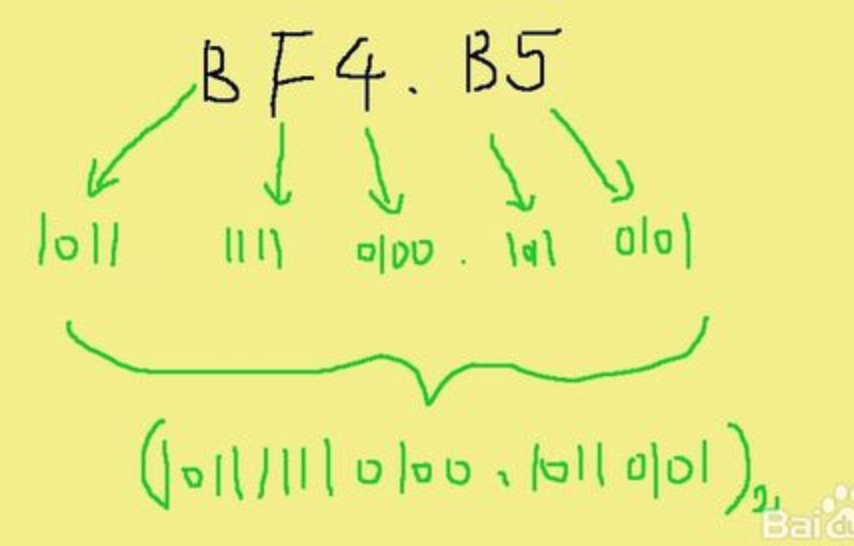 BF4.B5
1011 1111 0100 . 1011 0101
(101111110100.10110101)2
Bai